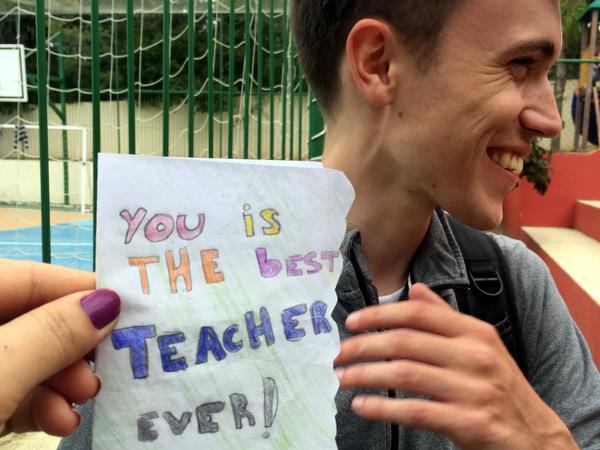 YOU iS
THE bEST
TEACHER
EVER!